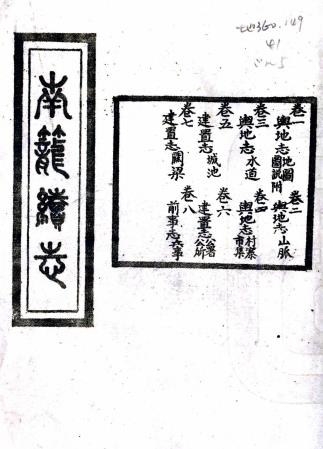 地360.149
41
南籠續志
卷一 卷二
輿地志地圖圖說附 輿地志山脈
卷三 卷四
輿地志水道 輿地志村寨市集
卷五 卷六
建置志城池 建置志公署公所
卷七 卷八
建置志關梁 前事志兵事